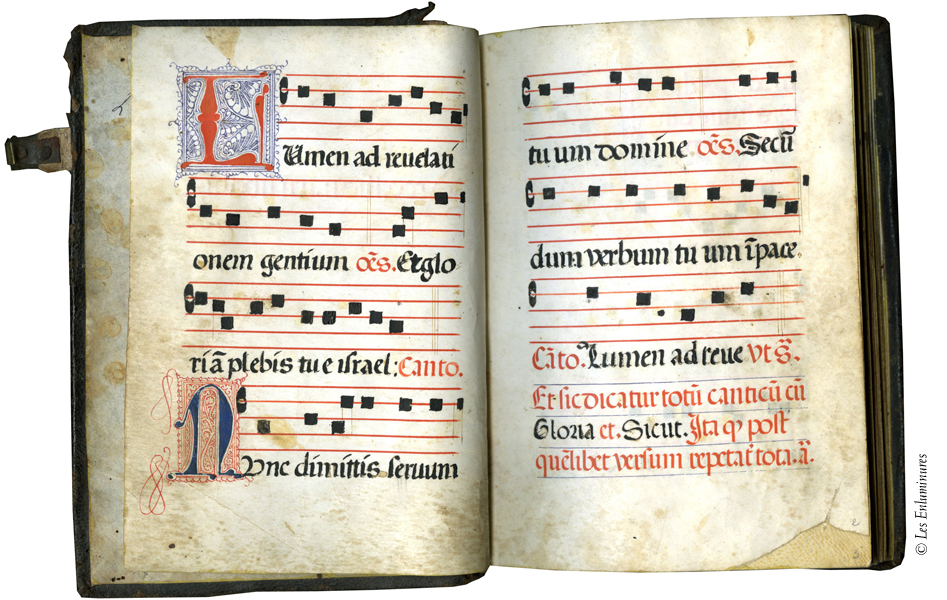 Lumen ad reuelati
onem gentium oe͂s. Et glo
ri ā plebis tu e israel: Canto.
Nunc dimittis seruum
tu um domine oe͂s. Secū
dum verbum tu um ī pace.
Cāto. Lumen ad reue vt s̄.
Et sic dicatur totū canticū cū
Gloria et. Sicut. Ita ꝙ post
quēlibet versum repetat̄ tota. ā.
© Les Enluminures